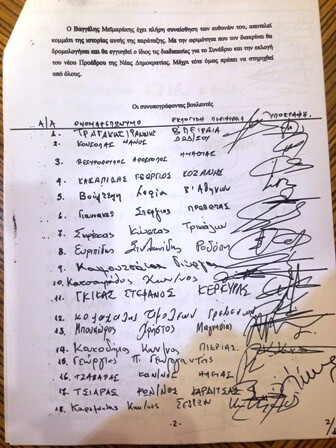 Ο Βαγγέλης Μεϊμαράκης έχει πλήρη συναίσθηση των ευθυνών του, αποτελεί
κομμάτι της ιστορίας αυτής της παράταξης. Με την ωριμότητα που τον διακρίνει θα
δρομολογήσει και θα εγγυηθεί ο ίδιος τις διαδικασίες για το Συνέδριο και την εκλογή
του νέου Προέδρου της Νέας Δημοκρατίας. Μέχρι τότε όμως πρέπει να στηριχθεί
από όλους.
Οι συνυπογράφοντες βουλευτές
Α/Α ΟΝΟΜΑΤΕΠΩΝΥΜΟ ΕΚΛΟΓΙΚΗ ΠΕΡΙΦΕΡΕΙΑ ΥΠΟΓΡΑΦΗ
1. ΤΡΑΓΑΚΗΣ ΙΩΑΝΝΗΣ Β ΠΕΙΡΑΙΑ
2. ΚΟΝΣΟΛΑΣ ΜΑΝΟΣ ΔΩΔ/ΣΟΥ
3. ΒΕΣΥΡΟΠΟΥΛΟΣ ΑΠΟΣΤΟΛΟΣ ΗΜΑΘΙΑΣ
4. ΚΑΣΑΠΙΔΗΣ ΓΕΩΡΓΙΟΣ ΚΟΖΑΝΗΣ
5. Βούλτεψη Σοφία Β' Αθηνών
6. Γιάννακης Στέργιος ΠΡΕΒΕΖΑΣ
7. Σκρέκας Κώστας Τρικάλων
8. Ευριπίδης Στυλιανίδης Ροδόπη
9. Γιώργος
10. Κατσαφάδος Κων/νος
11. ΓΚΙΚΑΣ ΣΤΕΦΑΝΟΣ ΚΕΡΚΥΡΑΣ
12. Γρεβενών
13. Μπουκώρος Χρήστος Μαγνησία
14. Κουκοδήμος Κων/νος ΠΙΕΡΙΑΣ
15. Γεώργιος Π. Γεωργαντάς
16. ΤΖΑΒΑΡΑΣ ΚΩΝ/ΝΟΣ ΗΛΕΙΑΣ
17. ΤΣΙΑΡΑΣ ΚΩΝ/ΝΟΣ ΚΑΡΔΙΤΣΑΣ
18. Καραμανλής Κων/νος Σερρών
-2-